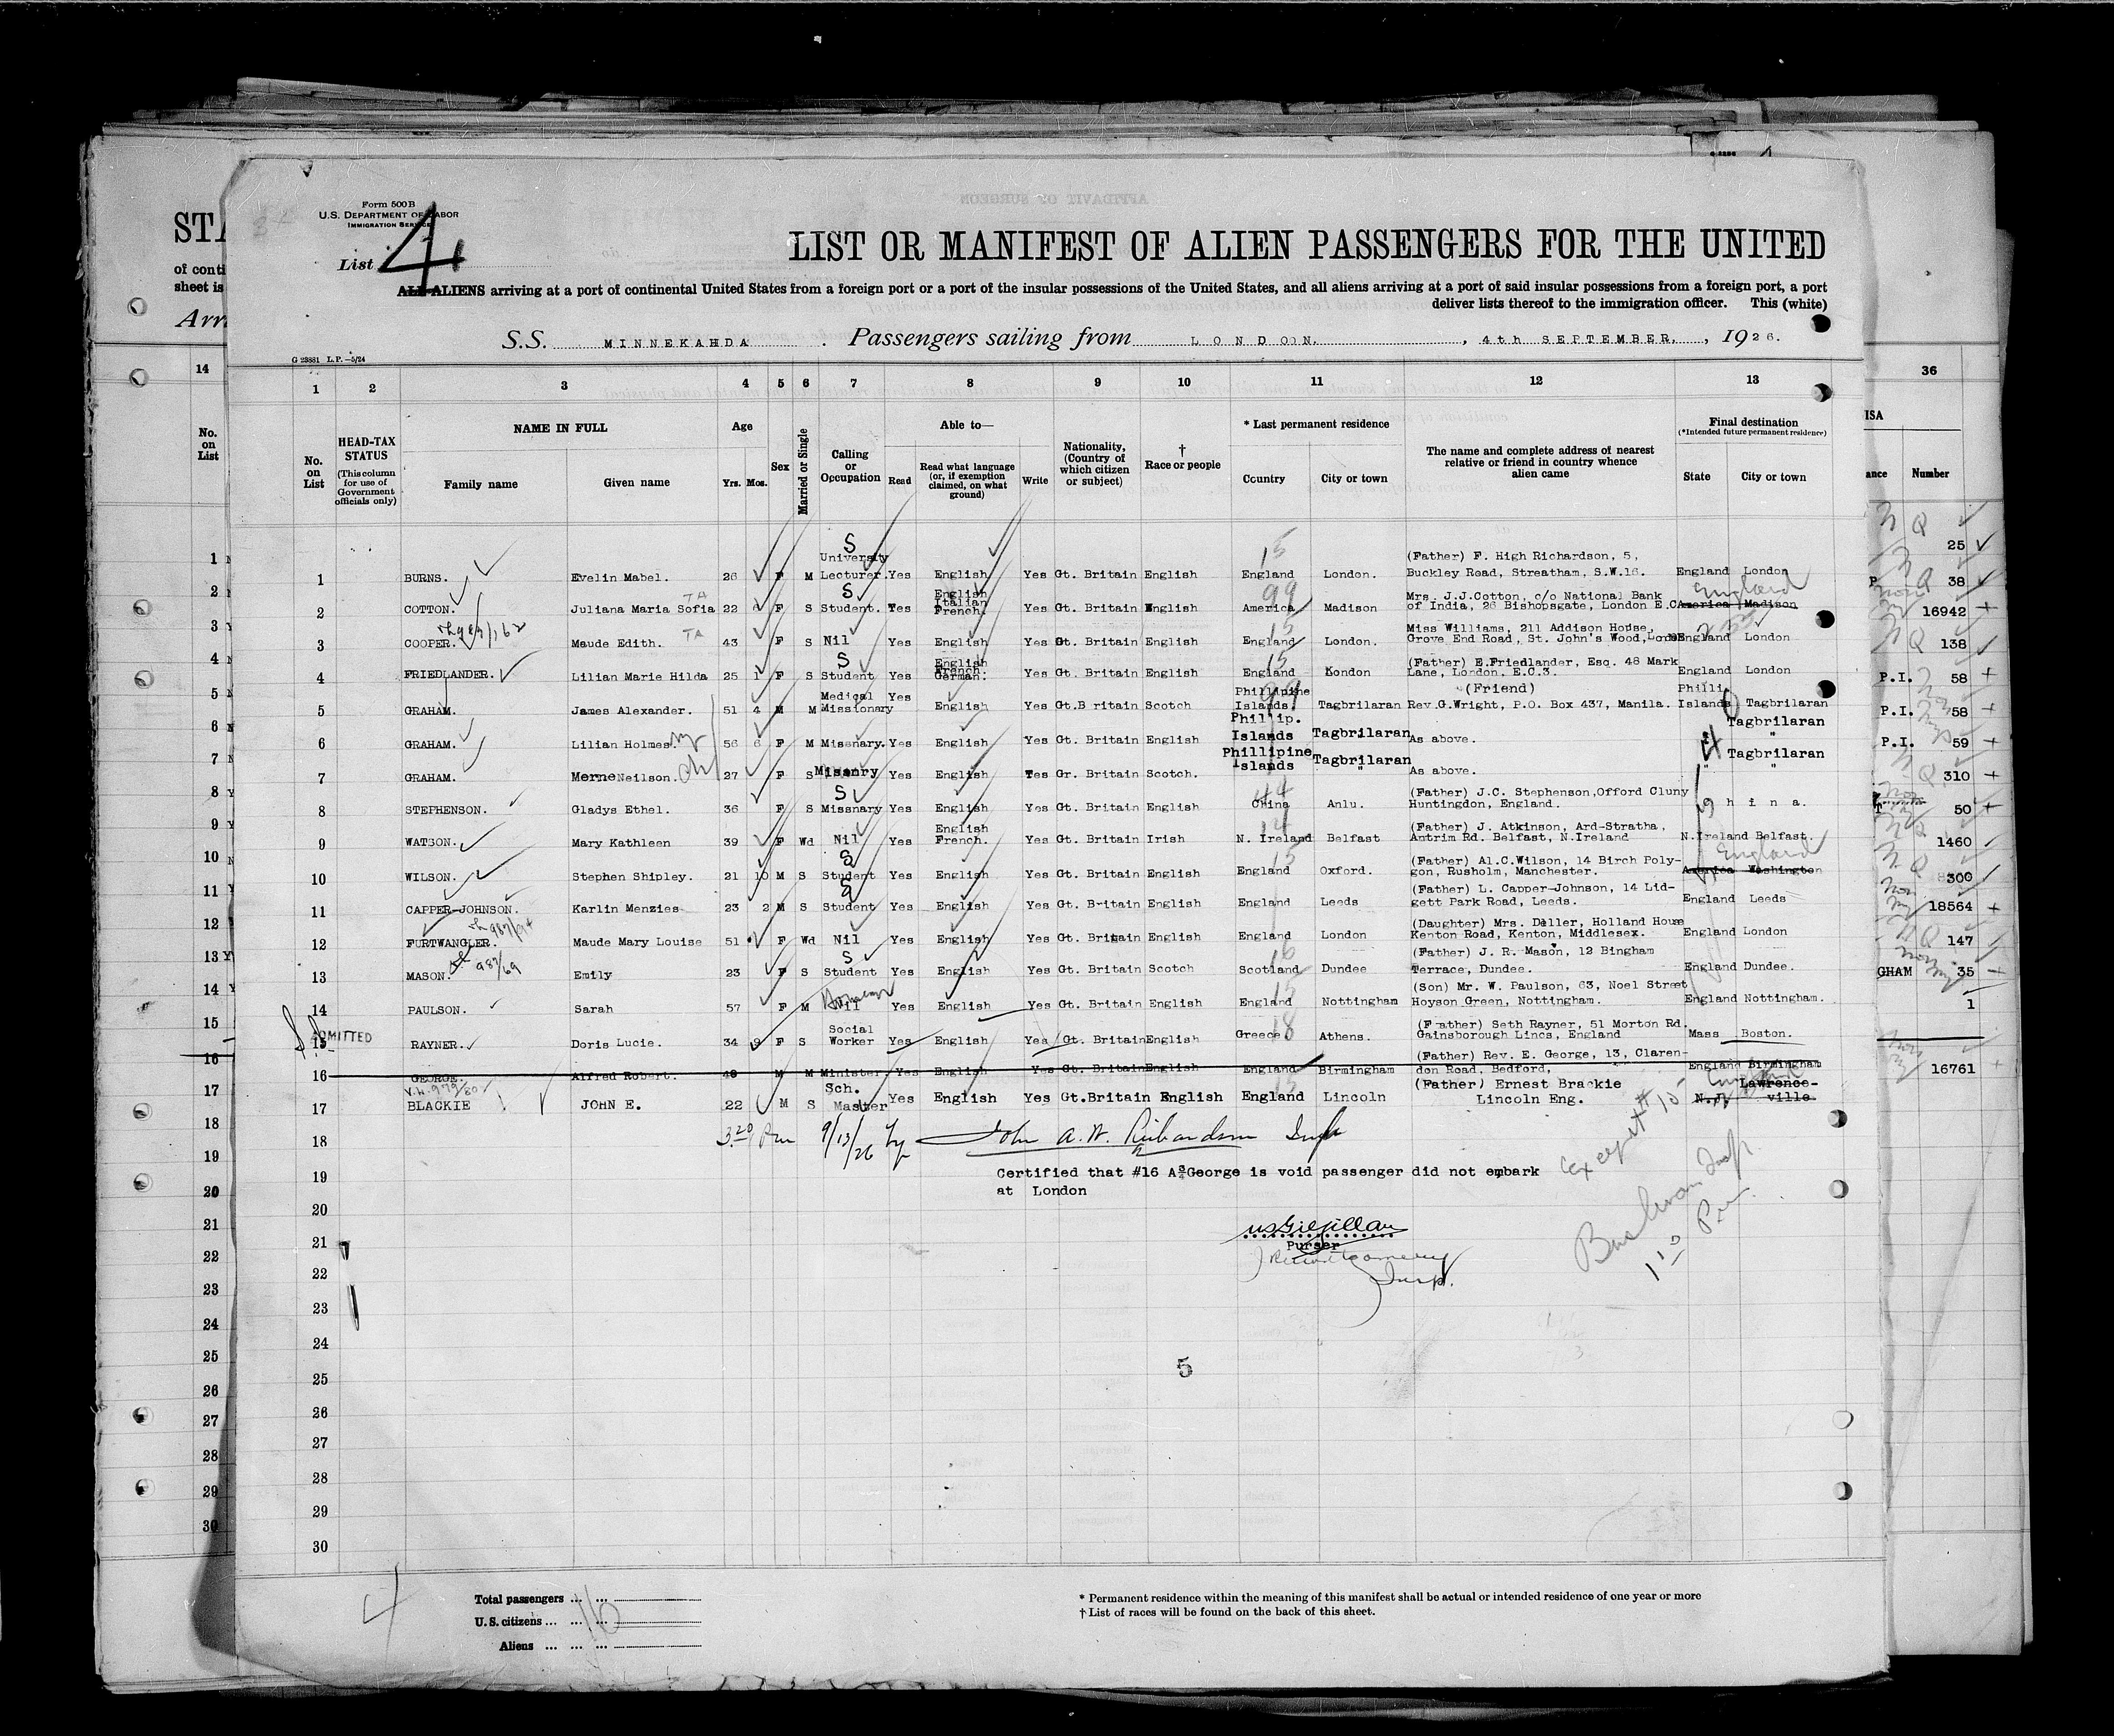 Form 500 B
U.S. DEPARTMENT OF LABOR
IMMIGRATION SERVICE
List 4
LIST OR MANIFEST OF ALIEN PASSENGERS FOR THE UNITED
ALL ALIENS arriving at a port of continental United States from a foreign port or a port of the insular possessions of the United States, and all aliens arriving at a port of said insular possessions from a foreign port, a port
deliver lists thereof to the immigration officer. This (white)
S.S. MINNEKAHDA. Passengers sailing from LONDON, 4th SEPTEMBER, 1926.
G 23881 L.P.-5/24
1 2 3 4 5 6 7 8 9 10 11 12 13
No. on List
HEAD-TAX STATUS (This column for use of Government officials only)
NAME IN FULL
Family name Given name
Age Yrs. Mos.
Sex
Married or Single
Calling or Occupation
Able to—
Read Read what language (or, if exemption claimed, on what ground) Write
Nationality, (Country of which citizen or subject)
† Race or people
* Last permanent residence
Country City or town
The name and complete address of nearest relative or friend in country whence alien came
Final destination
(*Intended future permanent residence)
State City or town
1 BURNS. Evelin Mabel. 26 F M University Lecturer. Yes English Yes Gt. Britain English England London. (Father) F. High Richardson, 5, Buckley Road, Streatham, S.W.16. England London
2 COTTON. Juliana Maria Sofia 22 F S Student. Yes English Italian French. Yes Gt. Britain English America Madison Mrs. J.J.Cotton, c/o National Bank of India, 26 Bishopsgate, London E.C America Madison England
3 COOPER. Maude Edith. 43 F S Nil Yes English Yes Gt. Britain English England London. Miss Williams, 211 Addison House, Grove End Road, St. John's Wood, London England London
4 FRIEDLANDER. Lilian Marie Hilda 25 1 F S Student Yes English French. German. Yes Gt. Britain English England London (Father) E.Friedlander, Esq. 48 Mark Lane, London. E.C.3. England London
5 GRAHAM. James Alexander. 51 4 M M Medical Missionary Yes English Yes Gt.Britain Scotch Phillipine Islands. Tagbrilaran (Friend) Rev.G.Wright, P.O. Box 437, Manila. Philli Islands Tagbrilaran
6 GRAHAM. Lilian Holmes. 56 6 F M Missnary. Yes English Yes Gt. Britain English Phillip. Islands Tagbrilaran As above. " Tagbrilaran "
7 GRAHAM. Merne Neilson. 27 F S Missnry Yes English Yes Gr. Britain Scotch. Phillipine Islands Tagbrilaran As above. " Tagbrilaran "
8 STEPHENSON. Gladys Ethel. 36 F S Missnary Yes English Yes Gt. Britain English China Anlu. (Father) J.C. Stephenson,Offord Cluny Huntingdon, England. China.
9 WATSON. Mary Kathleen 39 F Wd Nil Yes English French. Yes Gt. Britain Irish N. Ireland Belfast (Father) J. Atkinson, Ard-Stratha, Antrim Rd. Belfast, N.Ireland N.Ireland Belfast.
10 WILSON. Stephen Shipley. 21 10 M S Student Yes English Yes Gt. Britain English England Oxford. (Father) Al.C.Wilson, 14 Birch Poly- gon, Rusholm, Manchester. America Washington England
11 CAPPER-JOHNSON. Karlin Menzies 23 2 M S Student Yes English Yes Gt. Britain English England Leeds (Father) L. Capper-Johnson, 14 Lid- gett Park Road, Leeds. England Leeds
12 FURTWANGLER. Maude Mary Louise 51 F Wd Nil Yes English Yes Gt. Britain English England London (Daughter) Mrs. Diller, Holland House Kenton Road, Kenton, Middlesex. England London
13 MASON. Emily 23 F S Student Yes English Yes Gt. Britain Scotch Scotland Dundee (Father) J. R. Mason, 12 Bingham Terrace, Dundee. England Dundee.
14 PAULSON. Sarah 57 F M Nil Yes English Yes Gt. Britain English England Nottingham (Son) Mr. W. Paulson, 63, Noel Street Hoyson Green, Nottingham. England Nottingham.
ADMITTED
15 RAYNER. Doris Lucie. 34 9 F S Social Worker Yes English Yes Gt. Britain English Greece Athens. (Father) Seth Rayner, 51 Morton Rd. Gainsborough Lincs, England Mass Boston.
16 GEORGE. Alfred Robert. 48 M M Minister Yes English Yes Gt. Britain English England Birmingham (Father) Rev. E. George, 13, Claren- don Road, Bedford, England Birmingham
17 BLACKIE JOHN E. 22 M S Sch. Master Yes English Yes Gt.Britain English England Lincoln (Father) Ernest Brackie Lincoln Eng. N.J. Lawrence- ville England
18 3.20 Pm 9/13/26 John A.W. Richardson Insp
19 Certified that #16 A George is void passenger did not embark
at London
Except # 15
20
21
Purser
Insp.
22
23
24
25
5
26
27
28
29
30
4
Total passengers ... ... 16
U.S. citizens ... ... ...
Aliens ... ... ...
* Permanent residence within the meaning of this manifest shall be actual or intended residence of one year or more
† List of races will be found on the back of this sheet.
STA
of conti
sheet is
Arr
14
No. on List
1
2
3
4
5
6
7
8
9
10
11
12
13
14
15
16
17
18
19
20
21
22
23
24
25
26
27
28
29
30
36
ISA
ance Number
25
38
16942
138
P.I. 58
P.I. 58
P.I. 59
310
50
1460
300
18564
147
GHAM 35
1
16761